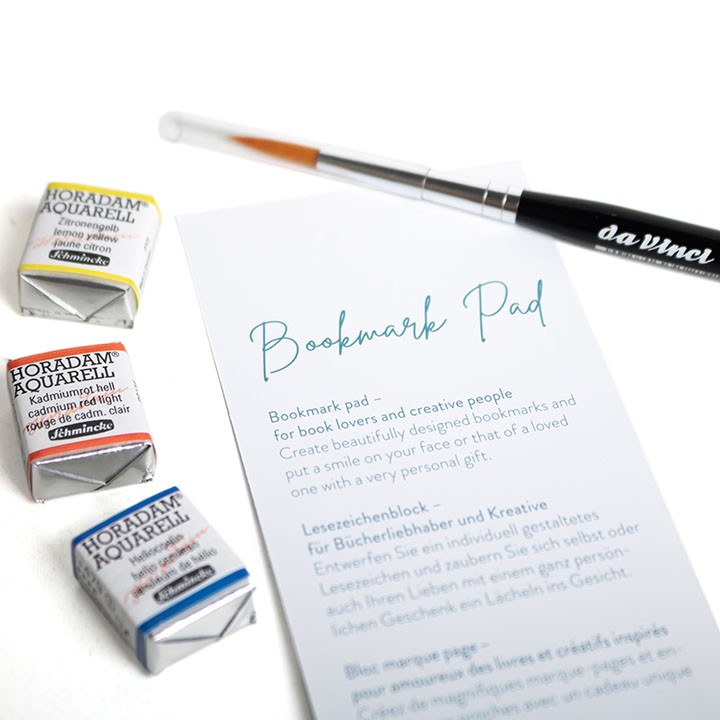 HORADAM®
AQUARELL
Zitronengelb
lemon yellow
jaune citron
Schmincke
HORADAM®
AQUARELL
Kadmiumrot hell
cadmium red light
rouge de cadm. clair
Schmincke
HORADAM®
AQUARELL
Heliocoelin
helio cerulean
céruléum de hélio
Schmincke
da Vinci
Bookmark Pad
Bookmark pad –
for book lovers and creative people
Create beautifully designed bookmarks and
put a smile on your face or that of a loved
one with a very personal gift.
Lesezeichenblock –
für Bücherliebhaber und Kreative
Entwerfen Sie ein individuell gestaltetes
Lesezeichen und zaubern Sie sich selbst oder
auch Ihren Lieben mit einem ganz persön-
lichen Geschenk ein Lächeln ins Gesicht.
Bloc marque page –
pour amoureux des livres et créatifs inspirés
Créez de magnifiques marque-pages et en-
proches avec un cadeau unique